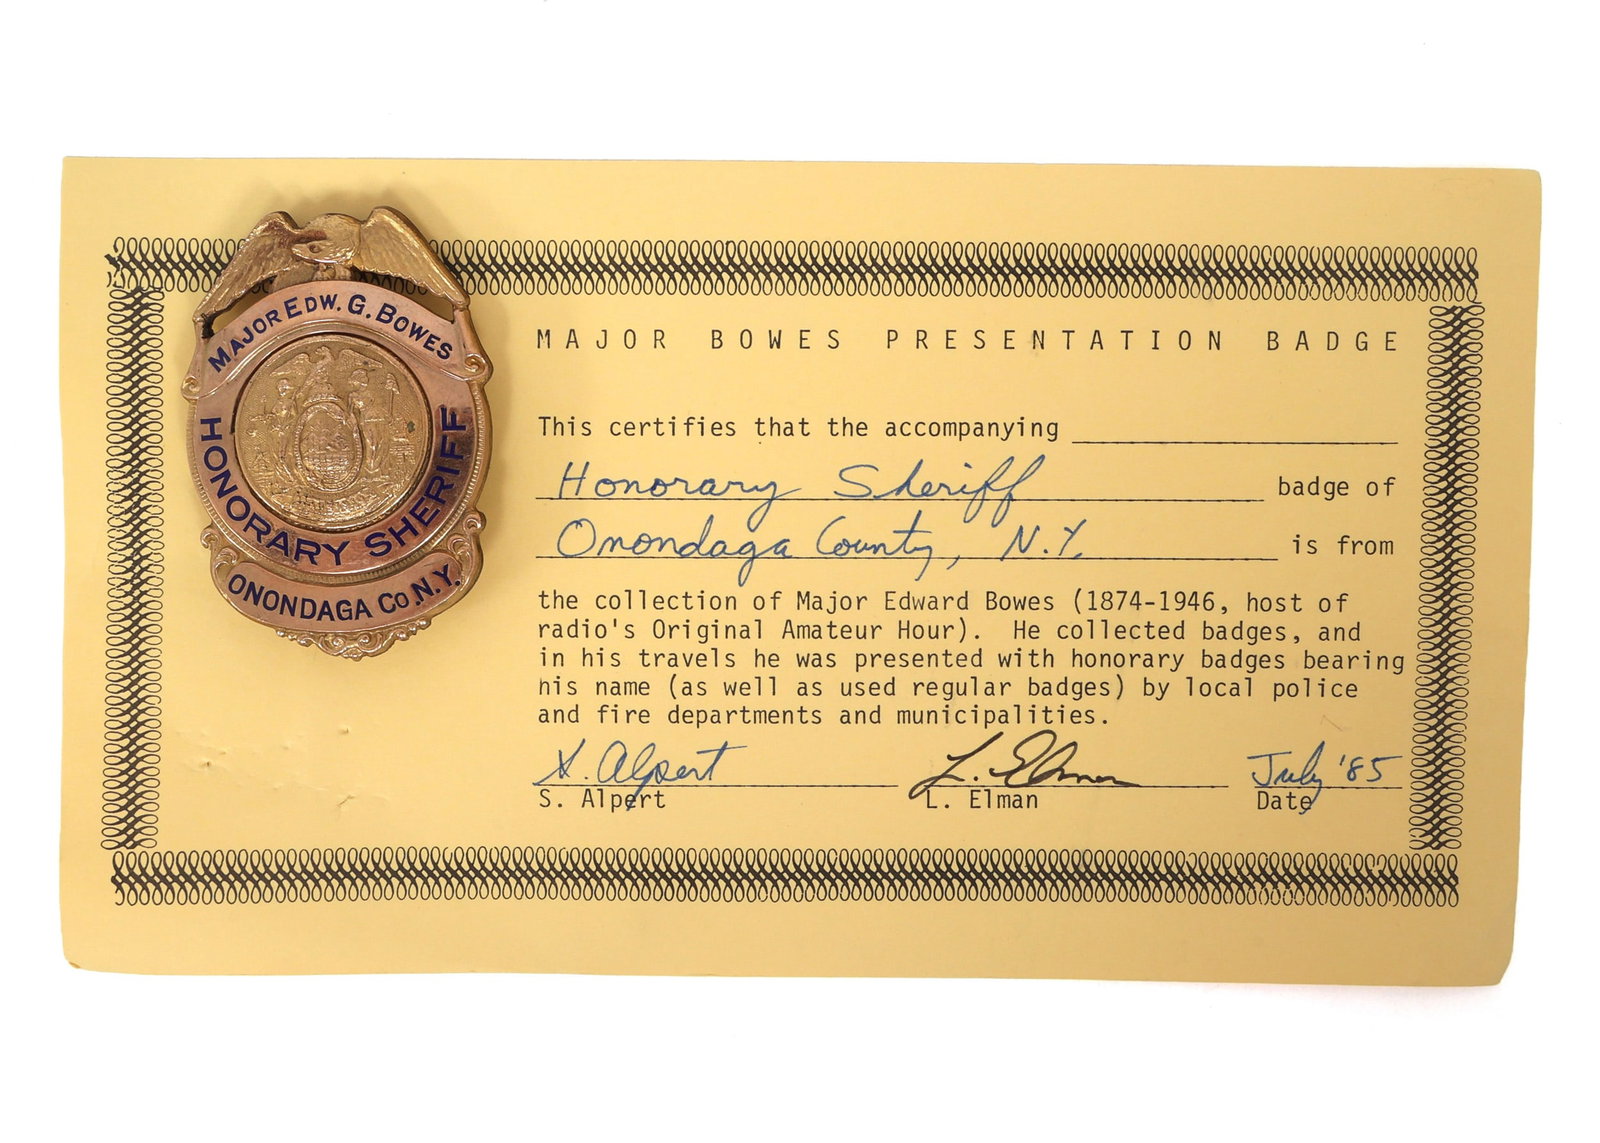 MAJOR EDW. G. BOWES
HONORARY SHERIFF
ONONDAGA CO. N.Y.
MAJOR BOWES PRESENTATION BADGE
This certifies that the accompanying
Honorary Sheriff badge of
Onondaga County, N.Y. is from
the collection of Major Edward Bowes (1874-1946, host of
radio's Original Amateur Hour). He collected badges, and
in his travels he was presented with honorary badges bearing
his name (as well as used regular badges) by local police
and fire departments and municipalities.
S. Alpert L. Elman July '85
S. Alpert L. Elman Date